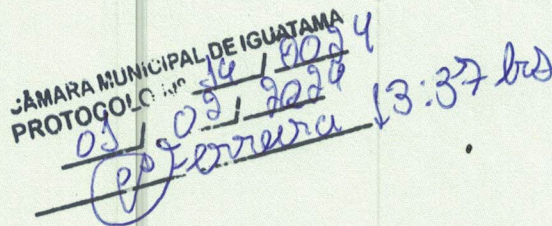 CÂMARA MUNICIPAL DE IGUATAMA
PROTOCOLO Nº 14 / 2024
01 / 02 / 2024
Ferreira 13:37 hrs